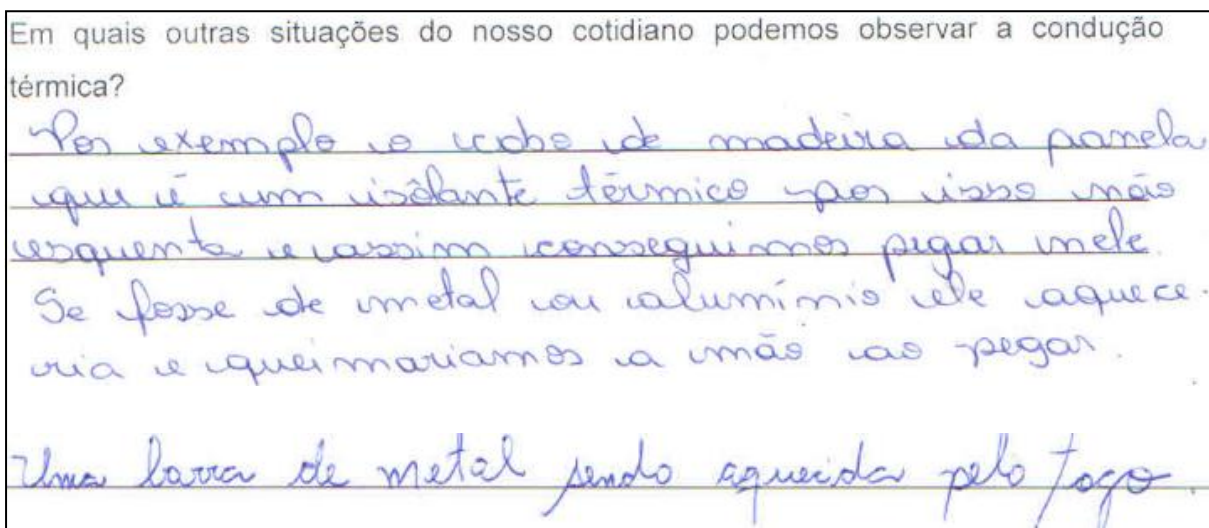 Em quais outras situações do nosso cotidiano podemos observar a condução
térmica?
Por exemplo o cabo de madeira da panela
que é um isôlante térmico por isso não
esquenta e assim conseguimos pegar nele.
Se fosse de metal ou alumínio ele aquece-
ria e queimariamos a mão ao pegar.
Uma barra de metal sendo aquecida pelo fogo.